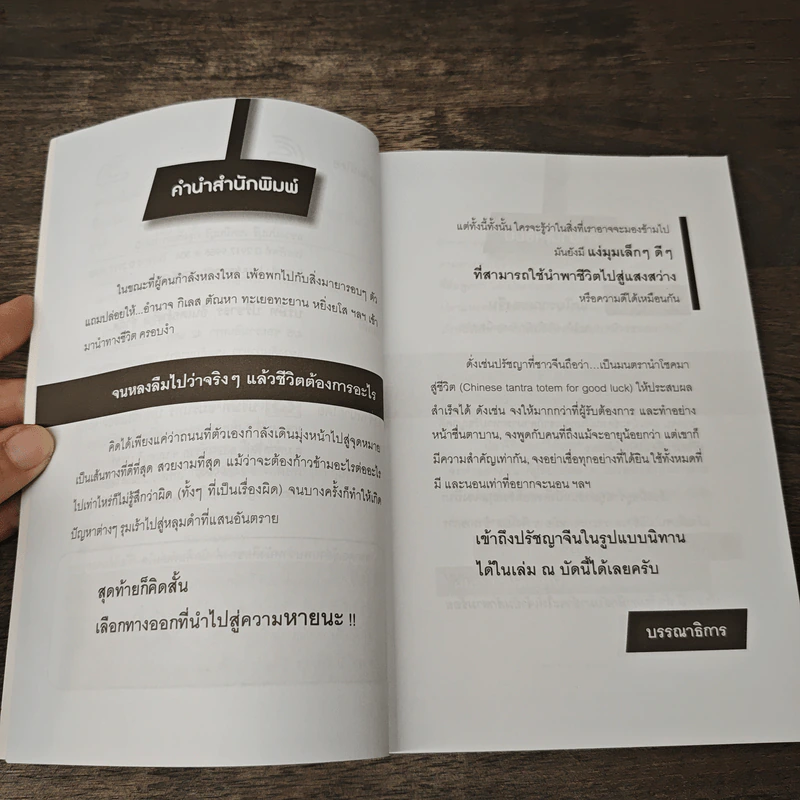 คำนำสำนักพิมพ์
ในขณะที่ผู้คนกำลังหลงใหล เพ้อพกไปกับสิ่งมายารอบๆ ตัว
แถมปล่อยให้...อำนาจ กิเลส ตัณหา ทะเยอทะยาน หยิ่งยโส ฯลฯ เข้า
มานำทางชีวิต ครอบงำ
จนหลงลืมไปว่าจริงๆ แล้วชีวิตต้องการอะไร
คิดได้เพียงแค่ว่าถนนที่ตัวเองกำลังเดินมุ่งหน้าไปสู่จุดหมาย
เป็นเส้นทางที่ดีที่สุด สวยงามที่สุด แม้ว่าจะต้องก้าวข้ามอะไรต่ออะไร
ไปเท่าไหร่ก็ไม่รู้สึกว่าผิด (ทั้งๆ ที่เป็นเรื่องผิด) จนบางครั้งก็ทำให้เกิด
ปัญหาต่างๆ รุมเร้าไปสู่หลุมดำที่แสนอันตราย
สุดท้ายก็คิดสั้น
เลือกทางออกที่นำไปสู่ความหายนะ !!
แต่ทั้งนี้ทั้งนั้น ใครจะรู้ว่าในสิ่งที่เราอาจจะมองข้ามไป
มันยังมี แง่มุมเล็กๆ ดีๆ
ที่สามารถใช้นำพาชีวิตไปสู่แสงสว่าง
หรือความดีได้เหมือนกัน
ดั่งเช่นปรัชญาที่ชาวจีนถือว่า...เป็นมนตรานำโชคมา
สู่ชีวิต (Chinese tantra totem for good luck) ให้ประสบผล
สำเร็จได้ ดังเช่น จงให้มากกว่าที่ผู้รับต้องการ และทำอย่าง
หน้าชื่นตาบาน, จงพูดกับคนที่ถึงแม้จะอายุน้อยกว่า แต่เขาก็
มีความสำคัญเท่ากัน, จงอย่าเชื่อทุกอย่างที่ได้ยิน ใช้ทั้งหมดที่
มี และนอนเท่าที่อยากจะนอน ฯลฯ
เข้าถึงปรัชญาจีนในรูปแบบนิทาน
ได้ในเล่ม ณ บัดนี้ได้เลยครับ
บรรณาธิการ